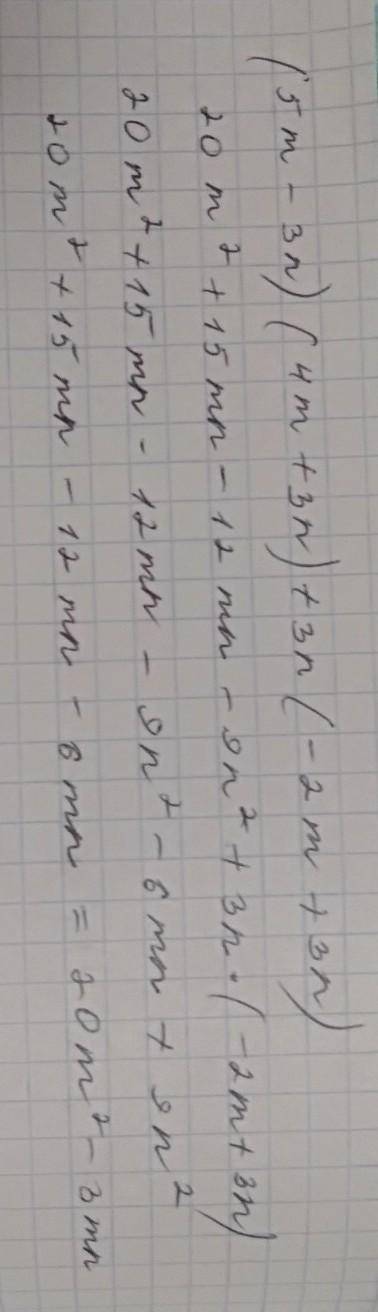 (5m - 3n)(4m + 3n) + 3n(-2m + 3n)
20m² + 15mn - 12mn - 9n² + 3n · (-2m + 3n)
20m² + 15mn - 12mn - 9n² - 6mn + 9n²
20m² + 15mn - 12mn - 6mn = 20m² - 3mn